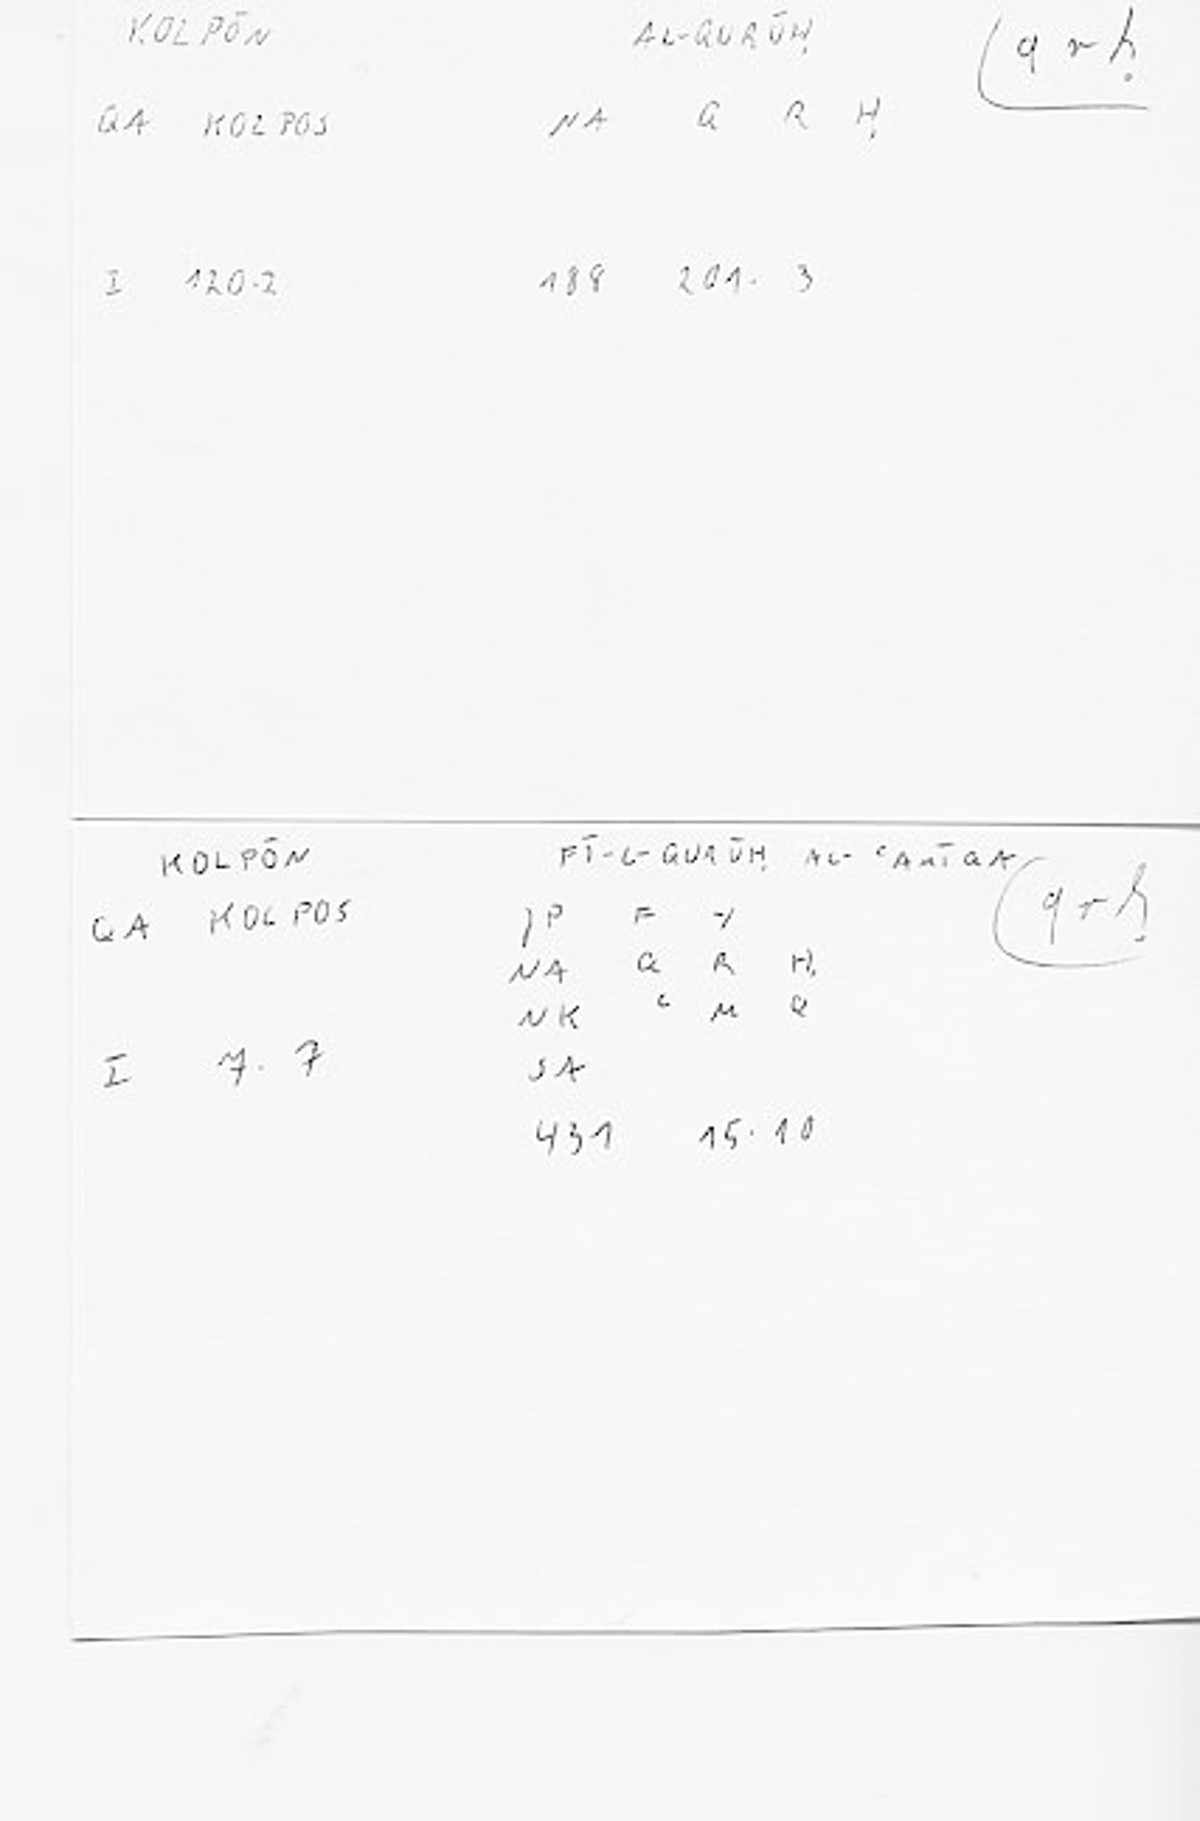 KOLPŌN AL-QURŪḤ qrḥ
QA KOLPOS NA Q R Ḥ
I 120.2 188 201. 3
KOLPŌN FĪ-L-QURŪḤ AL-ʿAMĪQA qrḥ
QA KOLPOS )P F Y
NA Q R Ḥ
NK ʿ M Q
I 7. 7 SA
431 15.10